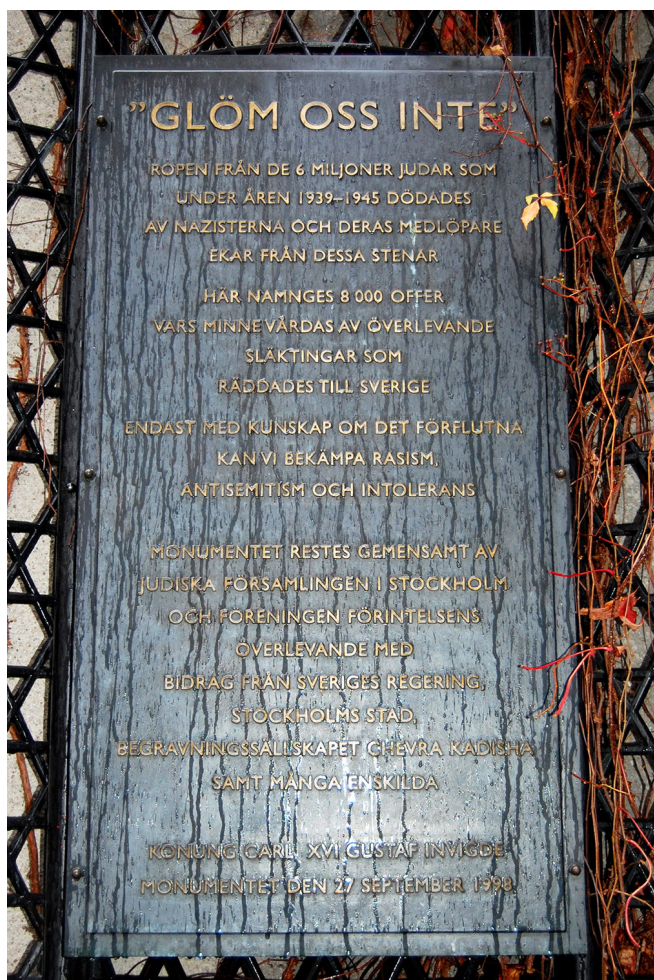 ”GLÖM OSS INTE”
ROPEN FRÅN DE 6 MILJONER JUDAR SOM
UNDER ÅREN 1939–1945 DÖDADES
AV NAZISTERNA OCH DERAS MEDLÖPARE
EKAR FRÅN DESSA STENAR
HÄR NAMNGES 8 000 OFFER
VARS MINNE VÅRDAS AV ÖVERLEVANDE
SLÄKTINGAR SOM
RÄDDADES TILL SVERIGE
ENDAST MED KUNSKAP OM DET FÖRFLUTNA
KAN VI BEKÄMPA RASISM,
ANTISEMITISM OCH INTOLERANS
MONUMENTET RESTES GEMENSAMT AV
JUDISKA FÖRSAMLINGEN I STOCKHOLM
OCH FÖRENINGEN FÖRINTELSENS
ÖVERLEVANDE MED
BIDRAG FRÅN SVERIGES REGERING,
STOCKHOLMS STAD,
BEGRAVNINGSSÄLLSKAPET CHEVRA KADISHA
SAMT MÅNGA ENSKILDA
KONUNG CARL XVI GUSTAF INVIGDE
MONUMENTET DEN 27 SEPTEMBER 1998